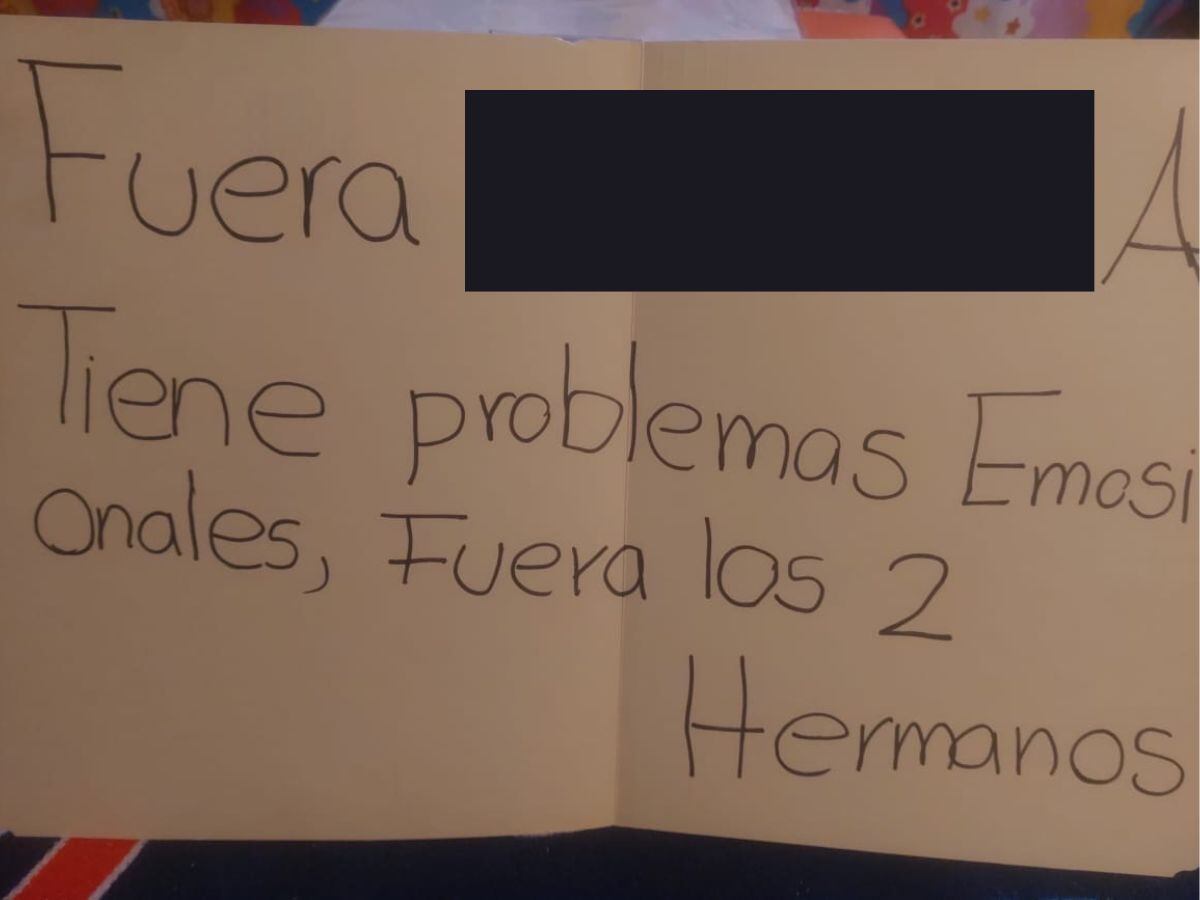 Fuera A
Tiene problemas Emosi
onales, Fuera los 2
Hermanos